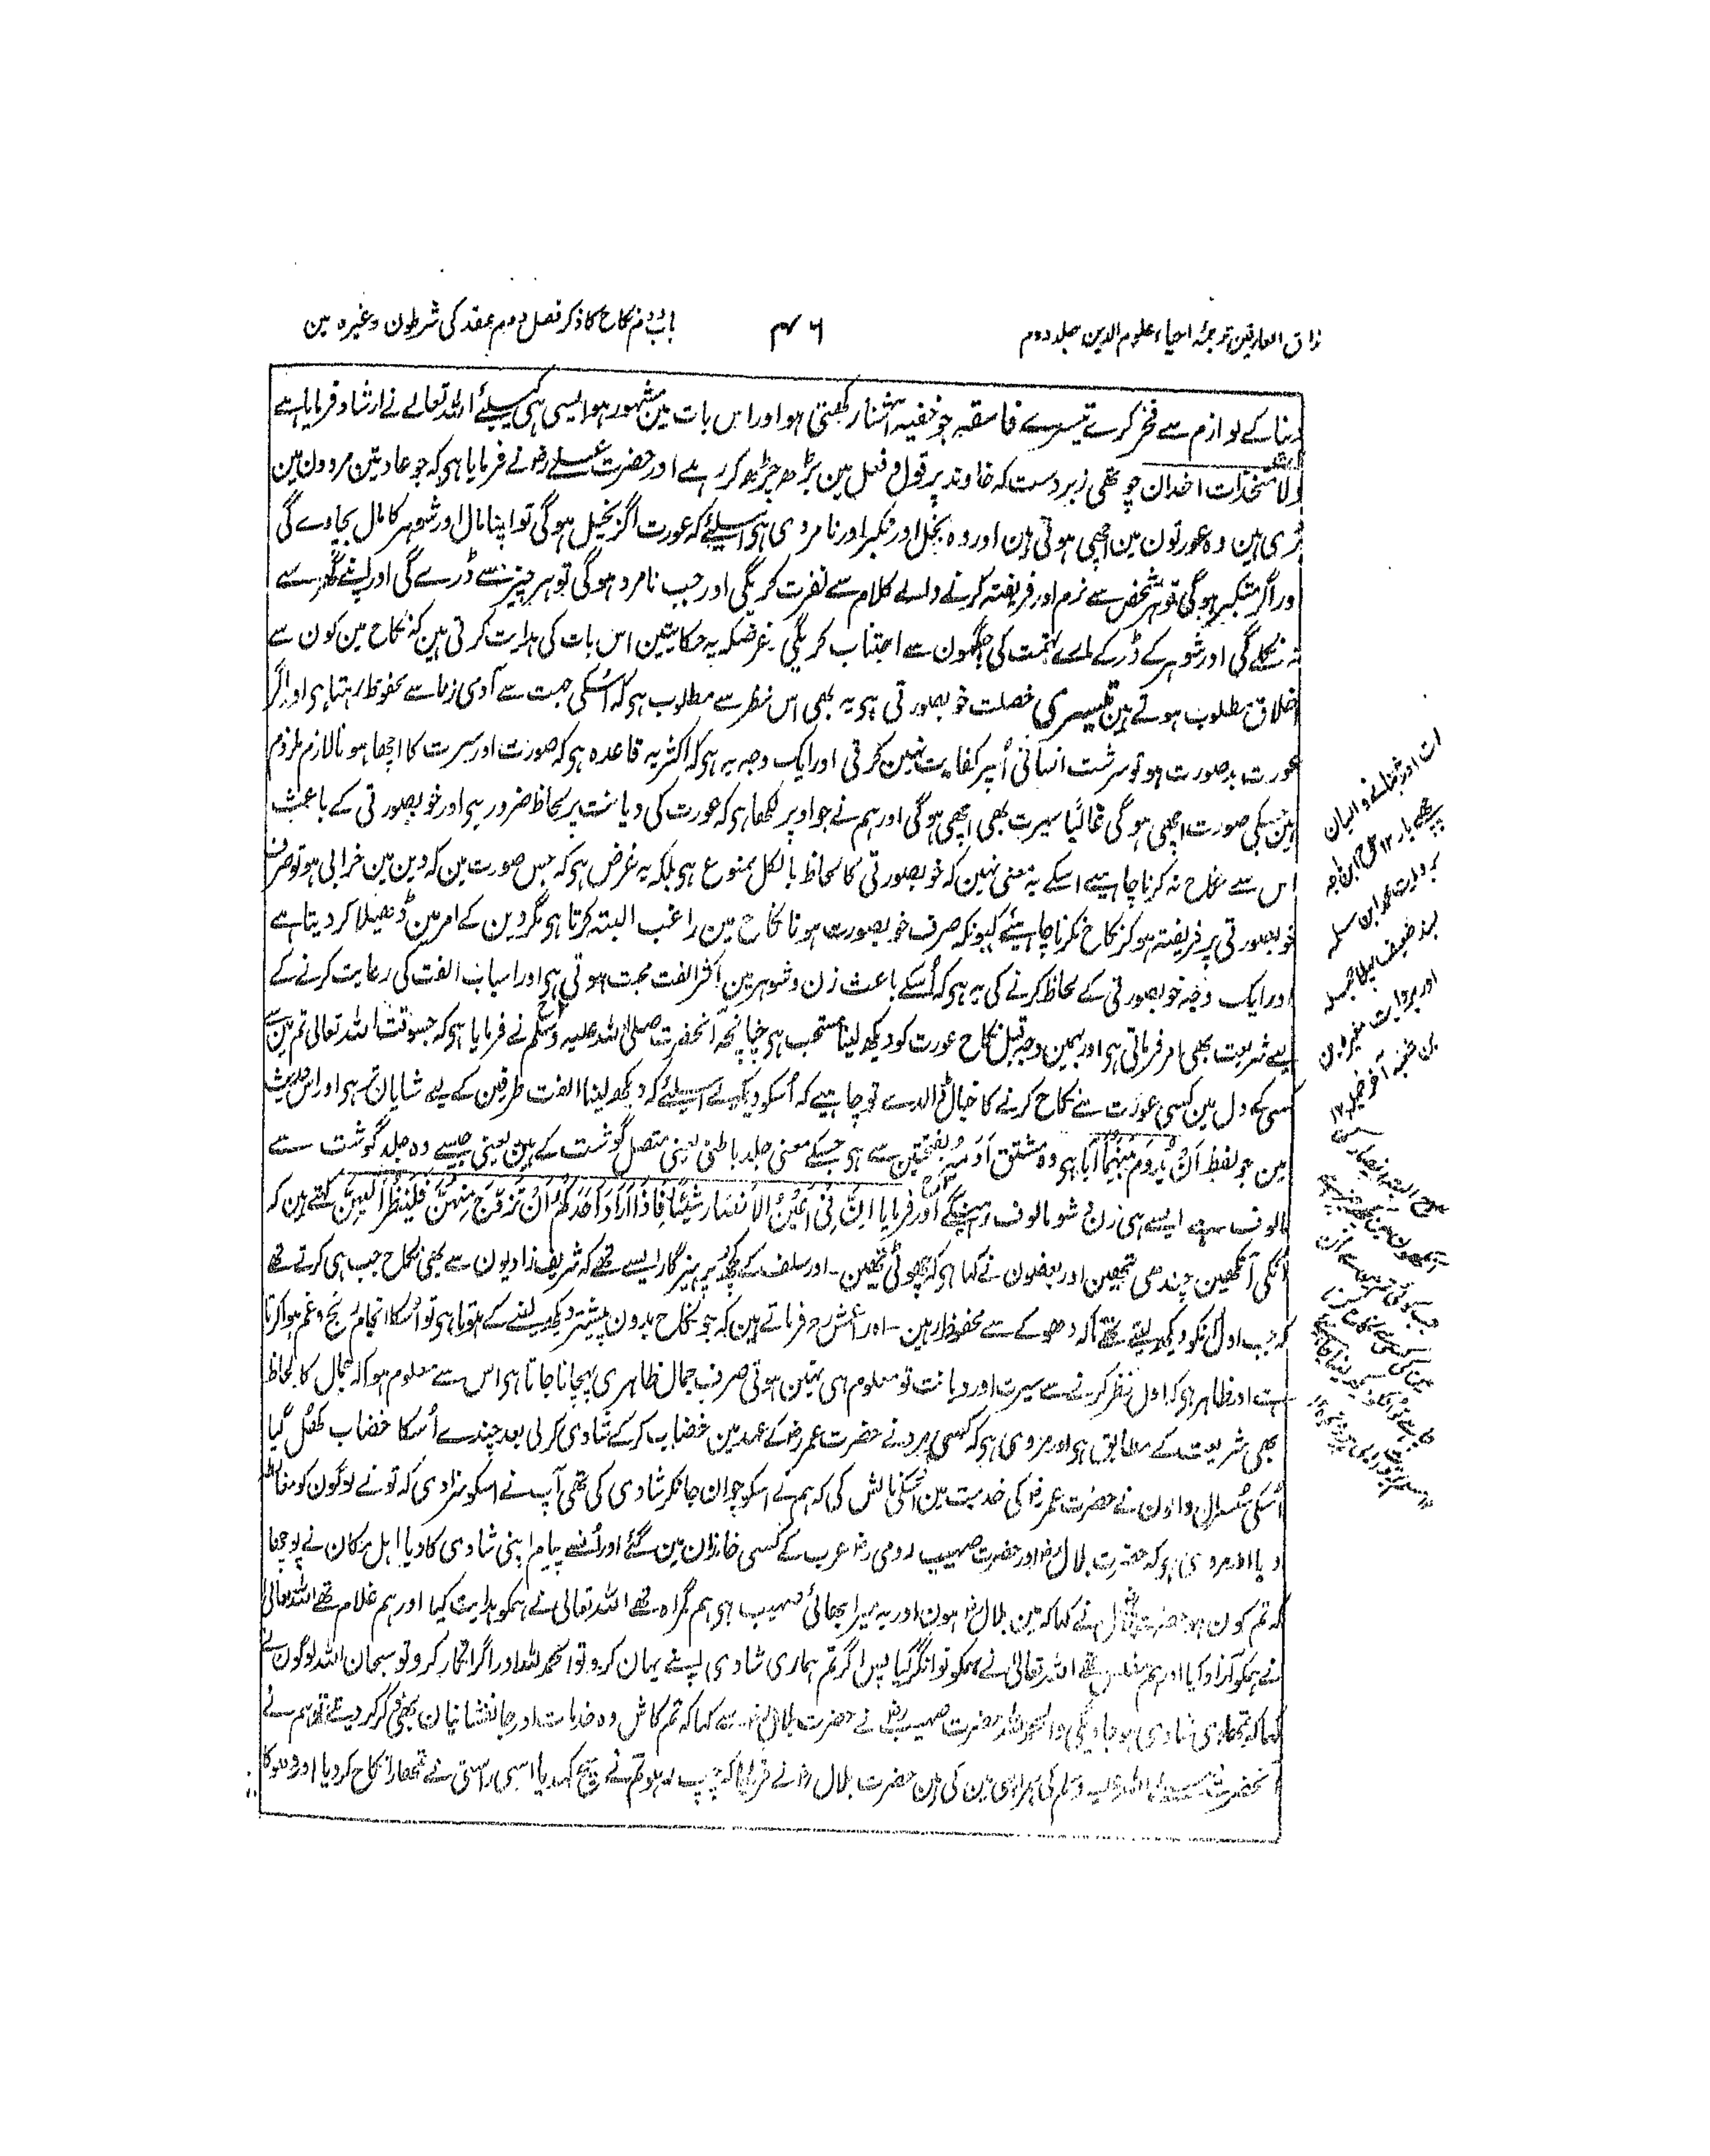 ذاق العارفین ترجمۂ احیاء علوم الدین جلد دوم
۴۶
باب دوم نکاح کا ذکر فصل دوم عقد کی شرطون وغیرہ مین
دنیا کے لوازم سے فخر کرے تیسرے فاسقہ جو خفیہ آشنا رکھتی ہو اور اس بات مین مشہور ہو ایسی ہی کے لیے اللہ تعالے نے ارشاد فرمایا ہے
ولا متخذات اخدان چوتھی زبردست کہ خاوند پر قول و فعل مین بڑھ چڑھ کر رہے اور حضرت علے رضہ نے فرمایا ہی کہ جو عادتین مردون مین
بری ہین وہ عورتون مین اچھی ہوتی ہین اور وہ بخل اور تکبر اور نامردی ہی اسلیے کہ عورت اگر بخیل ہوگی تو اپنا مال اور شوہر کا مال بچاوے گی
ور اگر متکبر ہوگی تو ہر شخص سے نرم اور فریفتہ کرنے والے کلام سے نفرت کریگی اور جب نامرد ہوگی تو ہر چیز سے ڈرے گی اور اپنے گھر سے
نہ نکلے گی اور شوہر کے ڈر کے مارے تہمت کی جگہون سے اجتناب کریگی غرضکہ یہ حکایتین اس بات کی ہدایت کرتی ہین کہ نکاح مین کون سے
اخلاق مطلوب ہوتے ہین تیسری خصلت خوبصورتی ہی یہ بھی اس نظر سے مطلوب ہی کہ اسکی جہت سے آدمی زنا سے محفوظ رہتا ہی اور اگر
عورت بدصورت ہو تو سرشت انسانی اُسپر کفایت نہین کرتی اور ایک وجہ یہ ہی کہ اکثر یہ قاعدہ ہی کہ صورت اور سیرت کا اچھا ہونا لازم ملزوم
ہین جسکی صورت اچھی ہوگی غالبًا سیرت بھی اچھی ہوگی اور ہم نے جو اوپر لکھا ہی کہ عورت کی دیانت پر لحاظ ضرور ہی اور خوبصورتی کے باعث
اس سے نکاح نہ کرنا چاہیے اسکے یہ معنی نہین کہ خوبصورتی کا لحاظ بالکل ممنوع ہی بلکہ یہ غرض ہی کہ جس صورت مین کہ دین مین خرابی ہو تو صرف
خوبصورتی پر فریفتہ ہو کر نکاح نکرنا چاہیئے کیونکہ صرف خوبصورت ہونا نکاح مین راغب البتہ کرتا ہی مگر دین کے امر مین ڈھیلا کر دیتا ہے
اور ایک وجہ خوبصورتی کے لحاظ کرنے کی یہ ہی کہ اُسکے باعث زن و شوہر مین اکثر الفت محبت ہوتی ہی اور اسباب الفت کی رعایت کرنے کے
لیے شریعت بھی امر فرماتی ہی اور بہمین وجہ قبل نکاح عورت کو دیکھ لینا مستحب ہی چنانچہ آنحضرت صلی اللہ علیہ وسلم نے فرمایا ہی کہ جسوقت اللہ تعالی تم مین سے
کسی کے دل مین کسی عورت سے نکاح کرنے کا خیال ڈالدے تو چاہیے کہ اُسکو دیکھ لے اسلیے کہ دیکھ لینا الفت طرفین کے لیے شایان تر ہی اور اس حدیث
مین جو لفظ اَنْ یُؤدَمَ بَیْنَہُمَا آیا ہی وہ مشتق اَدَمہ بفتحتین سے ہی جسکے معنی جلد باطنی یعنی متصل گوشت کے ہین یعنی جیسے وہ جلد گوشت سے
مالوف ہے ایسے ہی زن و شو مالوف رہینگے اور فرمایا اِنَّ فِیْ اَعْیُنِ الاَنْصَارِ شَیْئًا فَاِذَا اَرَادَ اَحَدُکُمْ اَنْ تَزَوَّجَ مِنْہُنَّ فَلْیَنْظُرْ اِلَیْہِنَّ کہتے ہین کہ
اُنکی آنکھین چندھی تھین اور بعضون نے کہا ہی کہ چھوٹی تھین ۔ اور سلف کے کچھ پرہیزگار ایسے تھے کہ شریف زادیون سے بھی نکاح جب ہی کرتے تھے
کہ جب اول انکو دیکھ لیتے تھے تاکہ دھوکے سے محفوظ رہین ۔ اور اعمش رح فرماتے ہین کہ جو نکاح بدون پیشتر دیکھ لینے کے ہوتا ہی تو اُسکا انجام رنج و غم ہوا کرتا
ہے اور ظاہر ہی کہ اول نظر کرنے سے سیرت اور دیانت تو معلوم ہی نہین ہوتی صرف جمال ظاہری پہچانا جاتا ہی اس سے معلوم ہوا کہ جمال کا لحاظ
بھی شریعت کے مطابق ہی اور مروی ہی کہ کسی مرد نے حضرت عمر رضہ کے عہد مین خضاب کر کے شادی کر لی بعد چندے اُسکا خضاب کھل گیا
اُسکی سسرال والون نے حضرت عمر رضہ کی خدمت مین اُسکی نالش کی کہ ہم نے اسکو جوان جانکر شادی کی تھی آپ نے اسکو سزا دی کہ تو نے لوگون کو مغالطہ
دیا اور مروی ہی کہ حضرت بلال رضہ اور حضرت صہیب رومی رضہ عرب کے کسی خاندان مین گئے اور اُنسے پیام اپنی شادی کا دیا اہل مکان نے پوچھا
کہ تم کون ہو حضرت بلال نے کہا کہ مین بلال رضہ ہون اور یہ میرا بھائی صہیب ہی ہم گمراہ تھے اللہ تعالی نے ہمکو ہدایت کیا اور ہم غلام تھے اللہ تعالی
نے ہمکو آزاد کیا اور ہم مفلس تھے اللہ تعالی نے ہمکو تونگر کیا پس اگر تم ہماری شادی اپنے یہان کرو تو الحمد للہ اور اگر انکار کرو تو سبحان اللہ لوگون نے
کہا کہ تمھاری شادی ہو جاویگی والحمد للہ حضرت صہیب رضہ نے حضرت بلال رضہ سے کہا کہ تم کاش وہ خدمات اور جانفشانیان بھی ذکر کر دیتے جو ہم نے
آنحضرت صلی اللہ علیہ وسلم کی ہمراہی مین کی ہین حضرت بلال رضہ نے فرمایا کہ چپ رہو تم نے سچ کہدیا اسی راستی نے تمھارا نکاح کر دیا اور دھوکا
بروایت محمد ابن سلمہ
بسند ضعیف
اور بروایت مغیرہ بن